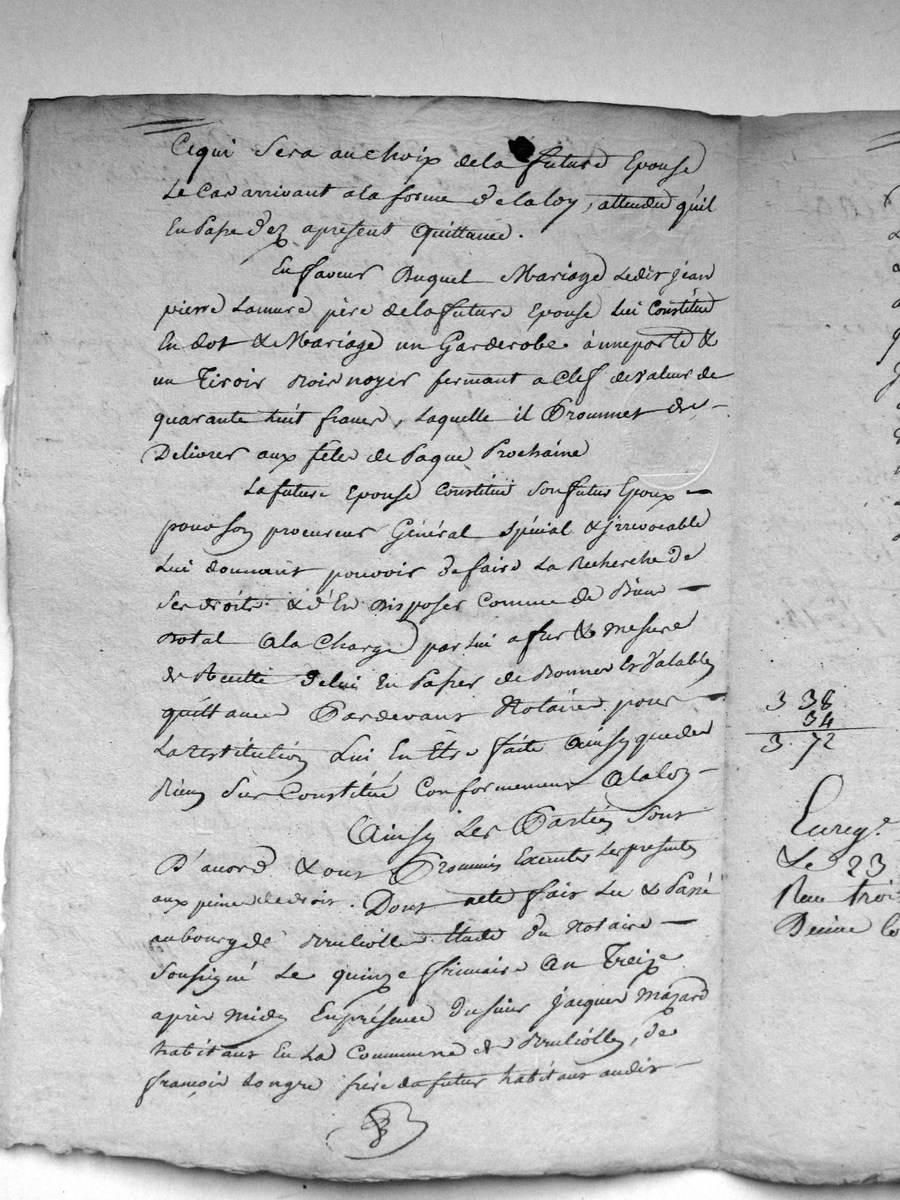 Cequi sera au choix dela future Epouse
Le Cas arrivant ala forme delaloy, attendu qu'il
En passe dez apresent quittance.
En faveur Duquel Mariage Ledit jean
pierre Lamure père dela future Epouse Lui Constitue
En dot & Mariage un Garderobe à uneporte &
un Tiroir Bois noyer fermant a Clef de valeur de
quarante huit francs, Laquelle il Proummet de
Delivrer aux fête de Paque Prochaine
La future Epouse Constitue Son futur Epoux
pour son procureur Général Spécial & jrrevocable
Lui donnant pouvoir de faire La Recherche de
Ses droits & d'En Disposer Comme de Bien
Dotal Ala Charge par Lui a fur & Mesure
de Recette delui En Passer de Bonnes Et Valables
quittances Pardevant Notaire pour
La restitution Lui En Etre faite Ainsy que des
Biens Sus Constitué Conformement Alaloy
Ainsy Les Parties Sont
D'acord & ont Proummis Executer Les presentes
aux peines de droit. Dont acte fait Lu & Passé
au bourg de Brulliolle Etude du Notaire
Soussigné Le quinze frimaire An Treize
après Midy En présence du sieur Jacques Mazard
habitant En La Commune de Brulliolles, de
françois Longre frère du futur habitant audit
3 38
34
3 72
Enreg.e
Le 23
Reçu trois